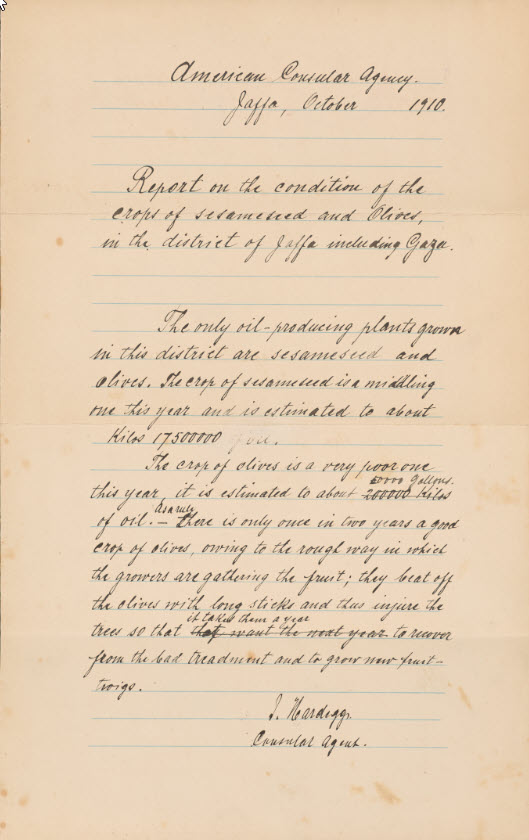 American Consular Agency.
Jaffa, October 1910.
Report on the condition of the
crops of sesameseed and Olives,
in the district of Jaffa including Gaza.
The only oil-producing plants grown
in this district are sesameseed and
olives. The crop of sesameseed is a middling
one this year and is estimated to about
Kilos 17500000
The crop of olives is a very poor one
50000 gallons.
this year, it is estimated to about 200000 Kilos
As a rule
of oil. — there is only once in two years a good
crop of olives, owing to the rough way in which
the growers are gathering the fruit; they beat off
the olives with long sticks and thus injure the
it takes them a year
trees so that that want the next year to recover
from the bad treatment and to grow new fruit-
twigs.
J. Hardegg.
Consular Agent.